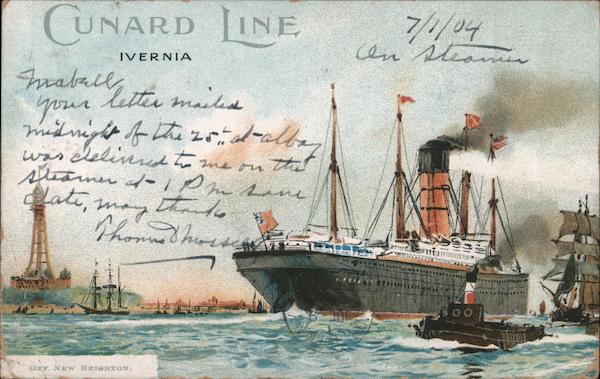 CUNARD LINE
IVERNIA
7/1/04
On Steamer
Mabell
your letter mailed
midnight of the 25" at
was delivered to me on the
steamer at 1 Pm same
date, many thanks
Thomas
OFF NEW BRIGHTON.